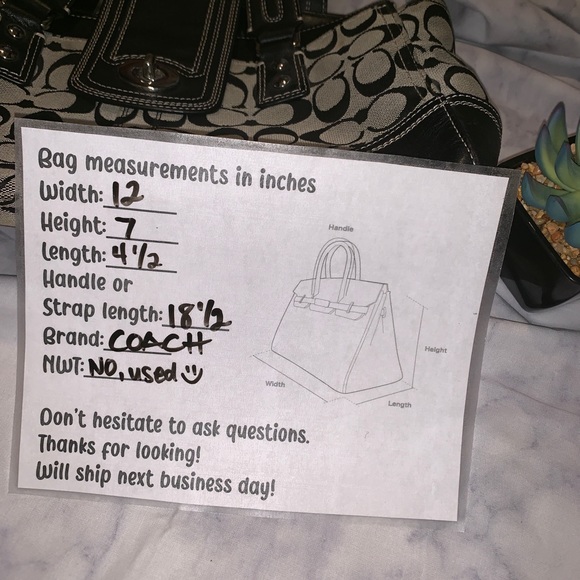 Bag measurements in inches
Width: 12
Height: 7
Length: 4 1/2
Handle or
Strap length: 18 1/2
Brand: COACH
NWT: NO, used ツ
Don't hesitate to ask questions.
Thanks for looking!
Will ship next business day!
Handle
Height
Width
Length